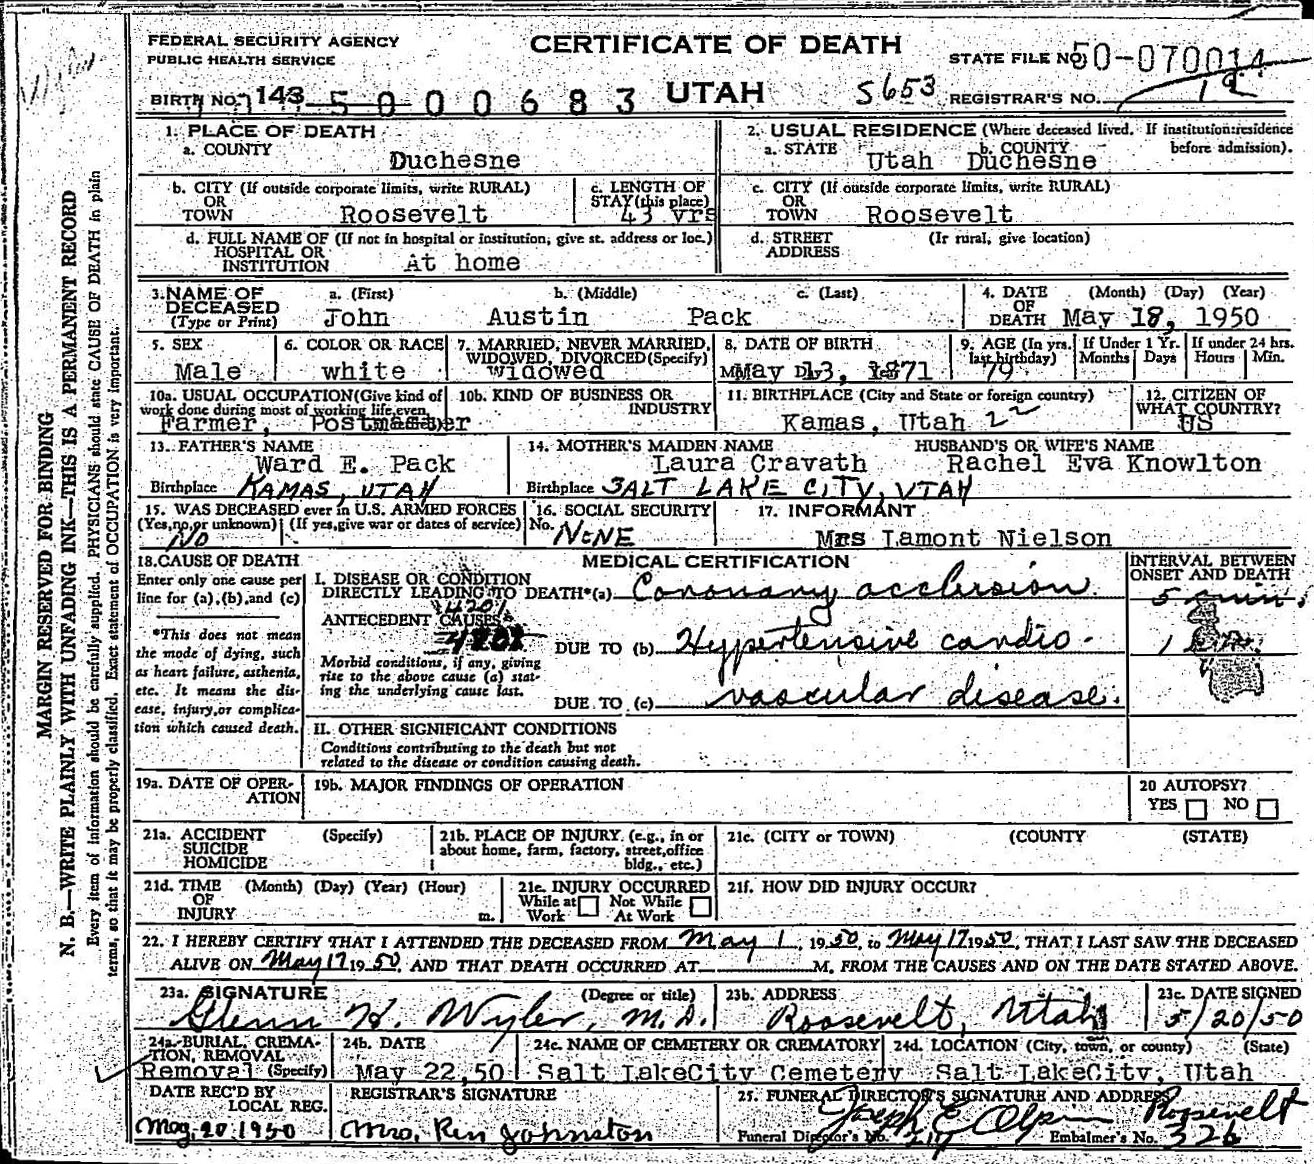 FEDERAL SECURITY AGENCY
PUBLIC HEALTH SERVICE
CERTIFICATE OF DEATH
UTAH
STATE FILE NO. 50-070014
BIRTH NO. 143 5 0 0 0 6 8 3
S653
REGISTRAR'S NO. 19
MARGIN RESERVED FOR BINDING
N. B.—WRITE PLAINLY WITH UNFADING INK—THIS IS A PERMANENT RECORD
Every item of information should be carefully supplied. PHYSICIANS should state CAUSE OF DEATH in plain
terms, so that it may be properly classified. Exact statement of OCCUPATION is very important.
1. PLACE OF DEATH
a. COUNTY
Duchesne
2. USUAL RESIDENCE (Where deceased lived. If institution:residence before admission).
a. STATE b. COUNTY
Utah Duchesne
b. CITY (If outside corporate limits, write RURAL)
OR
TOWN Roosevelt
c. LENGTH OF
STAY(this place)
43 yrs
c. CITY (If outside corporate limits, write RURAL)
OR
TOWN Roosevelt
d. FULL NAME OF (If not in hospital or institution, give st. address or loc.)
HOSPITAL OR
INSTITUTION At home
d. STREET (If rural, give location)
ADDRESS
3. NAME OF DECEASED
(Type or Print)
a. (First) b. (Middle) c. (Last)
John Austin Pack
4. DATE OF DEATH (Month) (Day) (Year)
May 18, 1950
5. SEX
Male
6. COLOR OR RACE
white
7. MARRIED, NEVER MARRIED,
WIDOWED, DIVORCED(Specify)
widowed
8. DATE OF BIRTH
May 13, 1871
9. AGE (In yrs. last birthday)
79
If Under 1 Yr.
Months Days
If under 24 hrs.
Hours Min.
10a. USUAL OCCUPATION(Give kind of
work done during most of working life,even
Farmer, Postmaster
10b. KIND OF BUSINESS OR
INDUSTRY
11. BIRTHPLACE (City and State or foreign country)
Kamas, Utah 22
12. CITIZEN OF
WHAT COUNTRY?
US
13. FATHER'S NAME
Ward E. Pack
Birthplace KAMAS, UTAH
14. MOTHER'S MAIDEN NAME
Laura Cravath
Birthplace SALT LAKE CITY, UTAH
HUSBAND'S OR WIFE'S NAME
Rachel Eva Knowlton
15. WAS DECEASED ever in U.S. ARMED FORCES
(Yes,no,or unknown) (If yes,give war or dates of service)
NO
16. SOCIAL SECURITY
No. NONE
17. INFORMANT
Mrs Lamont Nielson
18.CAUSE OF DEATH
Enter only one cause per
line for (a),(b),and (c)
*This does not mean
the mode of dying, such
as heart failure, asthenia,
etc. It means the dis-
ease, injury,or complica-
tion which caused death.
MEDICAL CERTIFICATION
INTERVAL BETWEEN
ONSET AND DEATH
I. DISEASE OR CONDITION
DIRECTLY LEADING TO DEATH*(a) Coronary occlusion 5 min.
4201
ANTECEDENT CAUSES
DUE TO (b) Hypertensive cardio-
Morbid conditions, if any, giving
rise to the above cause (a) stat-
ing the underlying cause last.
DUE TO (c) vascular disease.
II. OTHER SIGNIFICANT CONDITIONS
Conditions contributing to the death but not
related to the disease or condition causing death.
19a. DATE OF OPER-
ATION
19b. MAJOR FINDINGS OF OPERATION
20 AUTOPSY?
YES NO
21a. ACCIDENT (Specify)
SUICIDE
HOMICIDE
21b. PLACE OF INJURY (e.g., in or
about home, farm, factory, street,office
bldg., etc.)
21c. (CITY or TOWN) (COUNTY) (STATE)
21d. TIME (Month) (Day) (Year) (Hour)
OF
INJURY m.
21e. INJURY OCCURRED
While at Work Not While At Work
21f. HOW DID INJURY OCCUR?
22. I HEREBY CERTIFY THAT I ATTENDED THE DECEASED FROM May 1, 1950, to May 17 1950, THAT I LAST SAW THE DECEASED
ALIVE ON May 17 1950, AND THAT DEATH OCCURRED AT M. FROM THE CAUSES AND ON THE DATE STATED ABOVE.
23a. SIGNATURE (Degree or title)
Glenn H. Wyler, M.D.
23b. ADDRESS
Roosevelt, Utah
23c. DATE SIGNED
5/20/50
24a. BURIAL, CREMA-
TION, REMOVAL
Removal (Specify)
24b. DATE
May 22,50
24c. NAME OF CEMETERY OR CREMATORY
Salt LakeCity Cemetery
24d. LOCATION (City, town, or county) (State)
Salt LakeCity, Utah
DATE REC'D BY
LOCAL REG.
May 20 1950
REGISTRAR'S SIGNATURE
Mrs. Ren Johnston
25. FUNERAL DIRECTOR'S SIGNATURE AND ADDRESS
Joseph E Olpin Roosevelt
Funeral Director's No. 214 Embalmer's No. 326